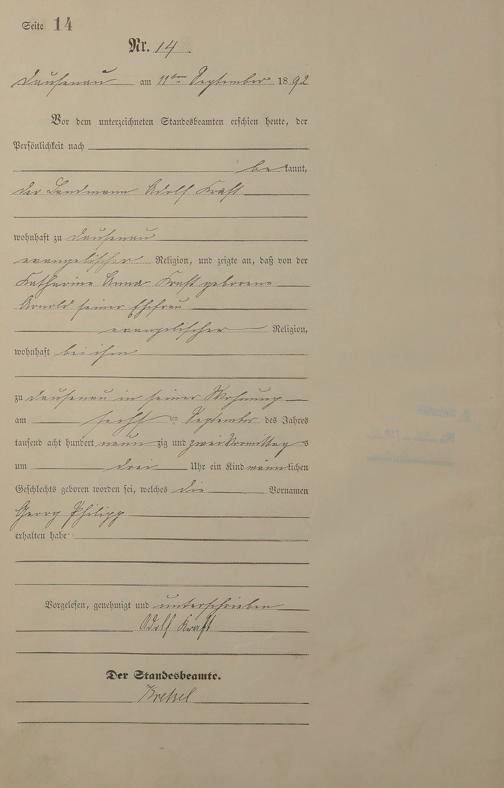 Seite 14
Nr. 14.
Dausenau am 11ten September 1892
Vor dem unterzeichneten Standesbeamten erschien heute, der
Persönlichkeit nach
bekannt,
der Landmann Adolf Kraft
wohnhaft zu Dausenau
evangelischer Religion, und zeigte an, daß von der
Katharine Anna Kraft geborene
Arnold seiner Ehefrau
evangelischer Religion,
wohnhaft bei ihm
zu Dausenau in seiner Wohnung
am sechsten September des Jahres
tausend acht hundert neunzig und zwei Vormittags
um drei Uhr ein Kind männlichen
Geschlechts geboren worden sei, welches die Vornamen
Georg Philipp
erhalten habe
Vorgelesen, genehmigt und unterschrieben
Adolf Kraft
Der Standesbeamte.